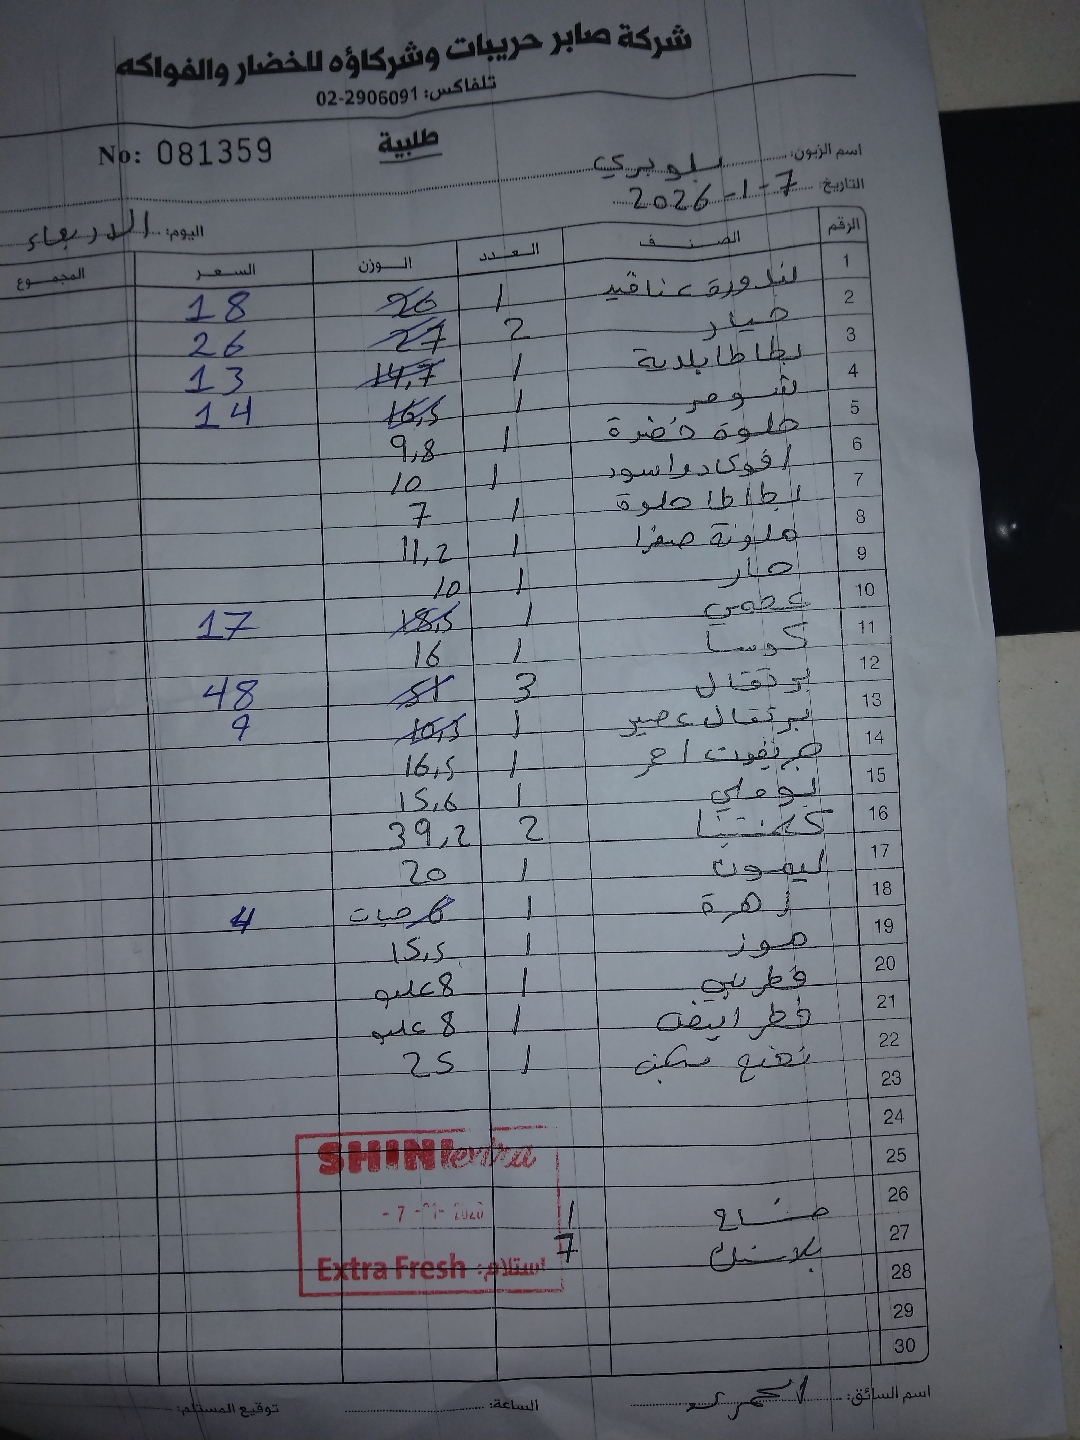 شركة صابر حريبات وشركاؤه للخضار والفواكه
تلفاكس: 02-2906091
No: 081359
طلبية
اسم الزبون: بلوبري
التاريخ: 7-1-2026
اليوم: الاربعاء
الرقم الصنف العدد الوزن السعر المجموع
1 بندورة عناقيد 1 26 18
2 خيار 2 27 26
3 بطاطا بلدية 1 14,7 13
4 شومر 1 16,5 14
5 حلوة خضرة 1 9,8
6 افوكادو اسود 1 10
7 بطاطا حلوة 1 7
8 ملونة صفرا 1 11,2
9 حار 1 10
10 عجمي 1 18,5 17
11 كوسا 1 16
12 برتقال 3 51 48
13 برتقال عصير 1 10,5 9
14 جريفوت احمر 1 16,5
15 بوملي 1 15,6
16 كلمنتينا 2 39,2
17 ليمون 1 20
18 زهرة 1 6 حبات 4
19 موز 1 15,5
20 فطر بني 1 8 علبو
21 فطر ابيض 1 8 علبو
22 نعنع 1 25
23
24
25
26 1
27 بلاستك 7
28
29
30
SHINI extra
-7-01-2026
Extra Fresh استلام:
اسم السائق:
الساعة:
توقيع المستلم: